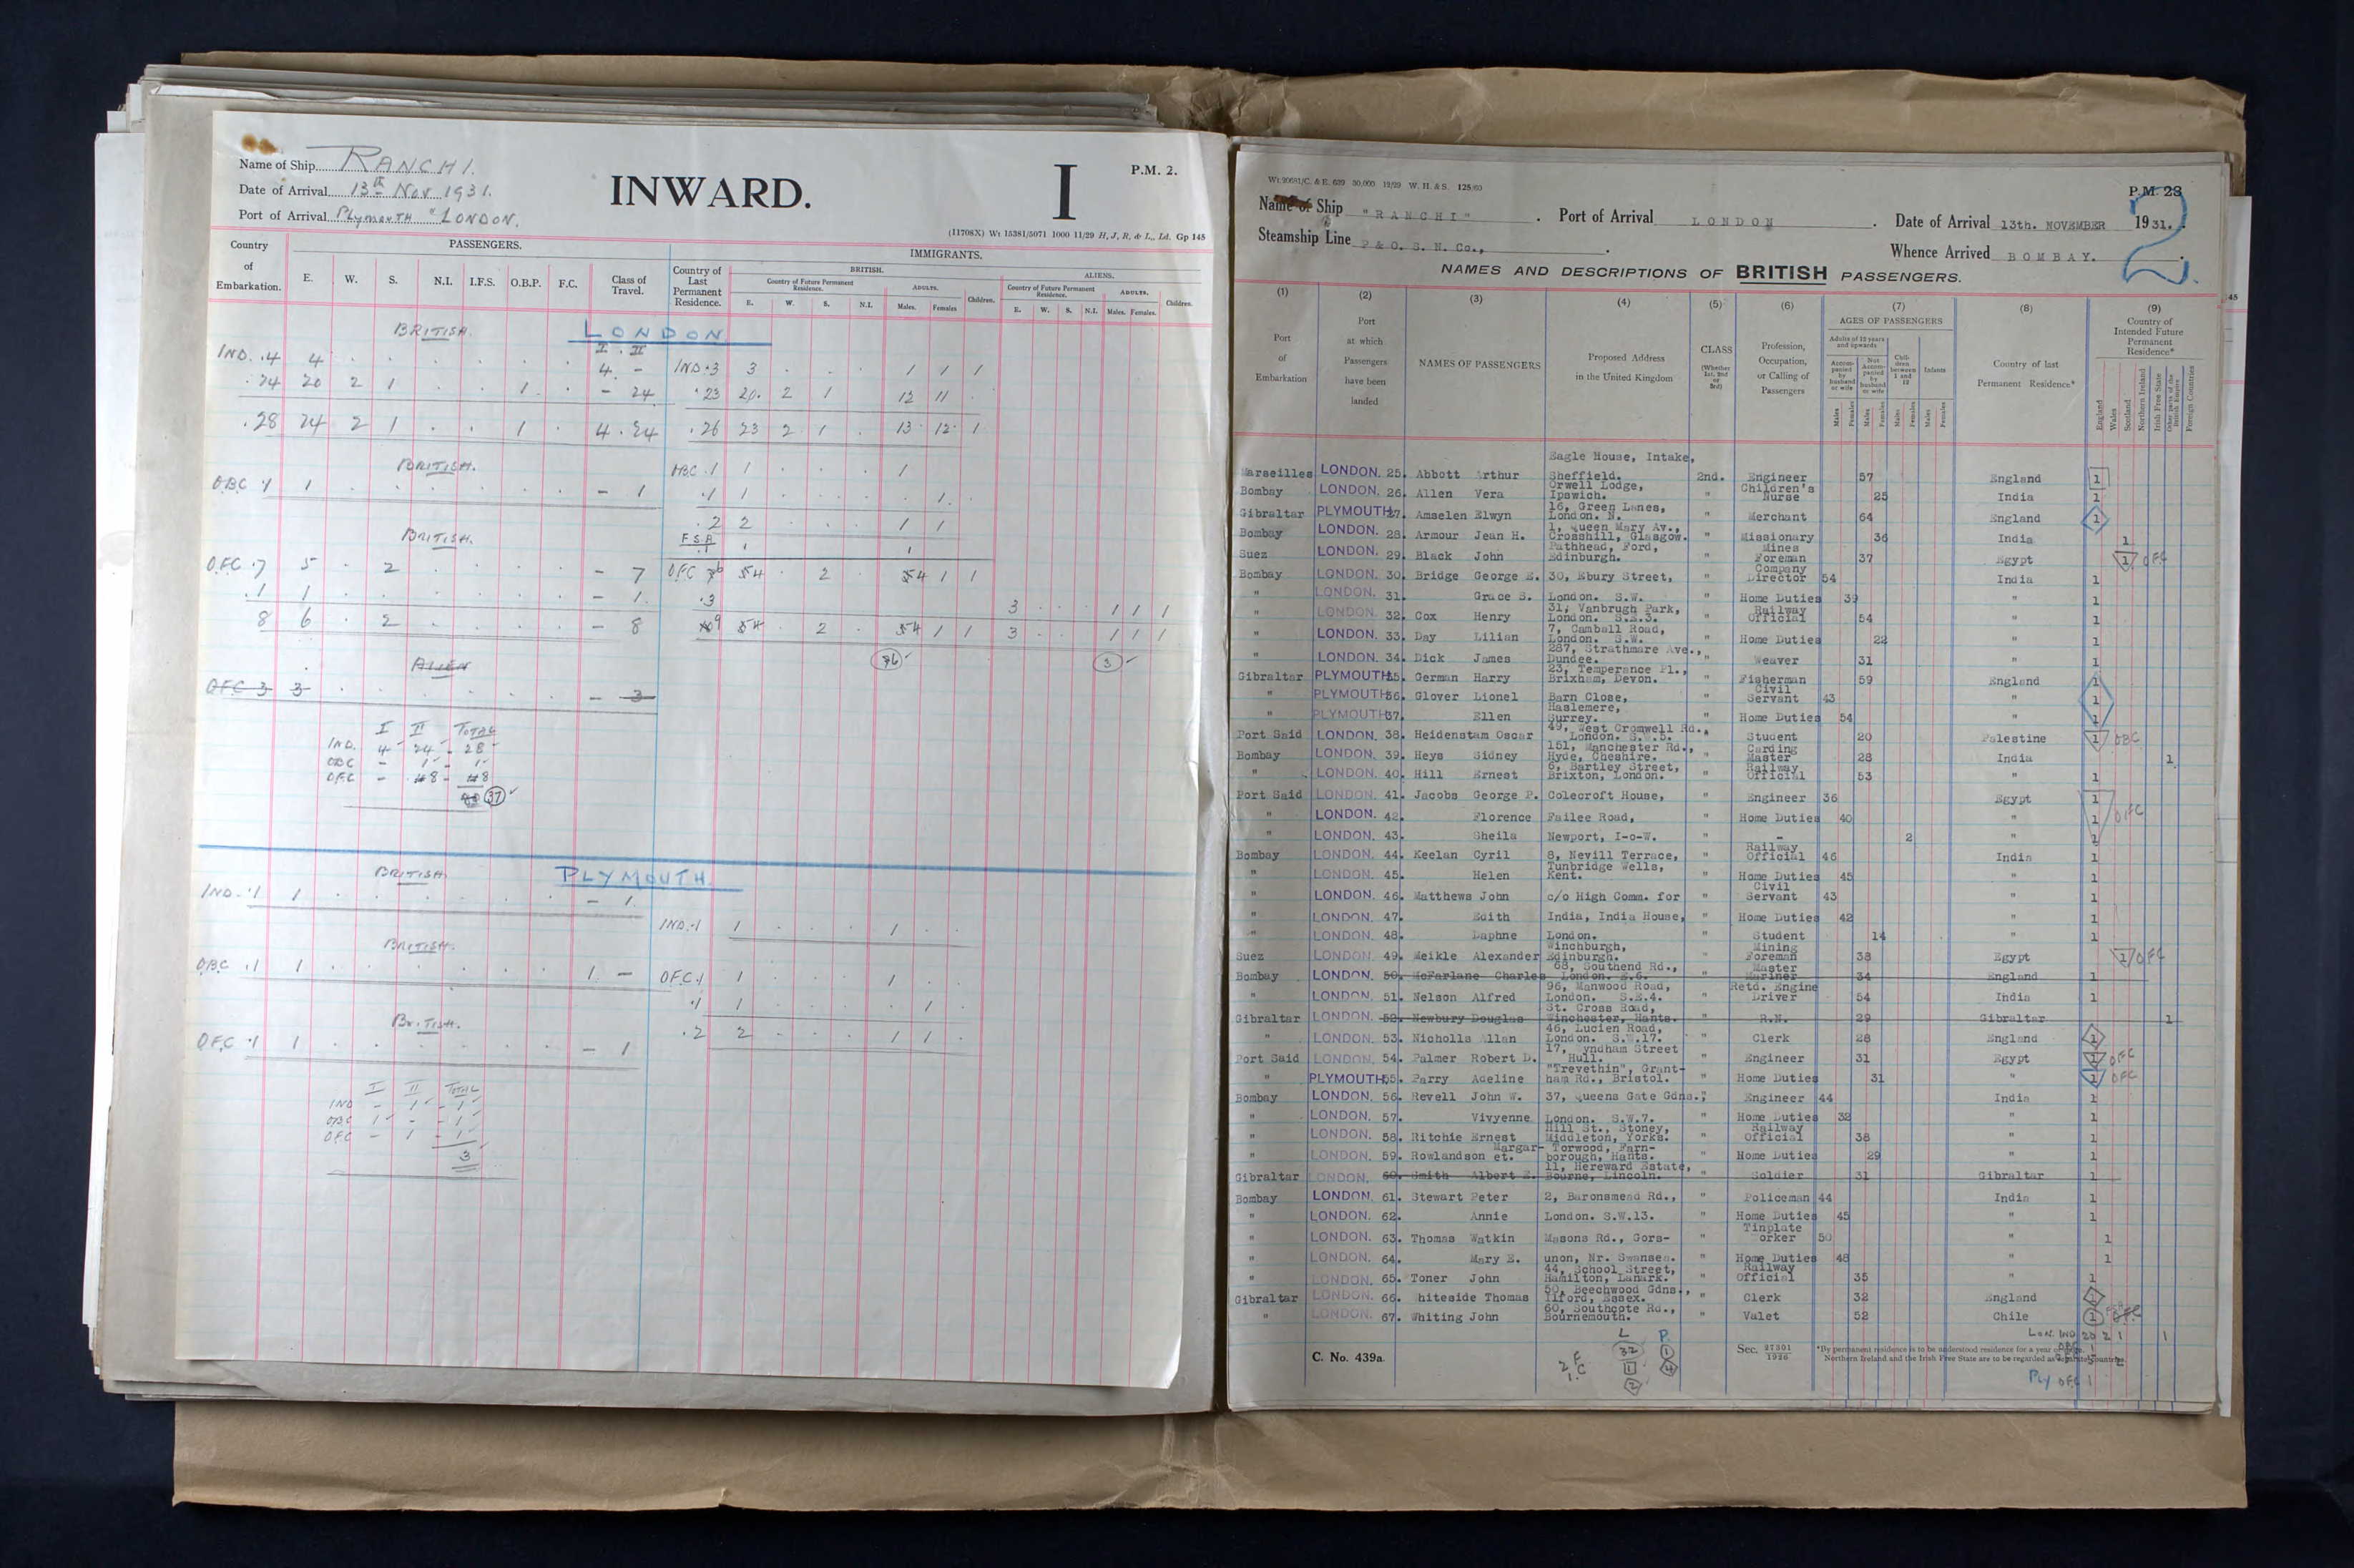 Name of Ship RANCHI.
Date of Arrival 13th Nov 1931.
Port of Arrival Plymouth "LONDON.
INWARD.
I
P.M. 2.
(11708X) Wt 15381/5071 1000 11/29 H, J, R, & L., Ld. Gp 145
Country of Embarkation.
PASSENGERS.
E. W. S. N.I. I.F.S. O.B.P. F.C. Class of Travel.
Country of Last Permanent Residence.
IMMIGRANTS.
BRITISH. ALIENS.
Country of Future Permanent Residence. ADULTS. Children. Country of Future Permanent Residence. ADULTS. Children.
E. W. S. N.I. Males. Females E. W. S. N.I. Males. Females.
BRITISH. LONDON
I . II
IND. .4 4 . . . . . . 4. - IND .3 3 . . . 1 1 1
.24 20 2 1 . . 1 . - 24 .23 20. 2 1 12 11 .
.28 24 2 1 . . 1 . 4 . 24 .26 23 2 1 . 13 . 12 . 1
BRITISH.
OBC .1 1 . . . . . . - 1
.1 1 . . . . . 1.
. 2 2 . . . 1 1
BRITISH.
F.S.A
.1 1 1
OFC .7 5 . 2 . . . . - 7 OFC 54 . 2 . 54 1 1
.1 1 . . . . . . - 1. .3 3 . . . 1 1 1
8 6 . 2 . . . . - 8 54 . 2 . 54 1 1 3 . . 1 1 1
3
ALIEN
OFC 3 3 . . . . . . - 3
I II TOTAL
IND. 4 - 24 - 28
OBC - 1 - 1
OFC - 8 - 8
37
BRITISH PLYMOUTH.
IND. .1 1 . . . . . . - 1.
IND. .1 1 . . . 1 . .
BRITISH.
OBC .1 1 . . . . . . 1. - OFC .1 1 . . . 1 . .
.1 1 . . . . 1 .
BRITISH. . 2 2 . . . 1 1 .
OFC .1 1 . . . . . . - 1
I II TOTAL
IND - 1 - 1
OBC 1 - - 1
OFC - 1 - 1
3
P.M. 23
2
Name of Ship "RANCHI" . Port of Arrival LONDON . Date of Arrival 13th. NOVEMBER 1931.
Steamship Line P & O. S. N. Co., . Whence Arrived BOMBAY.
NAMES AND DESCRIPTIONS OF BRITISH PASSENGERS.
(1) (2) (3) (4) (5) (6) (7) (8) (9)
Port of Embarkation
Port at which Passengers have been landed
NAMES OF PASSENGERS
Proposed Address in the United Kingdom
CLASS (Whether 1st, 2nd or 3rd)
Profession, Occupation, or Calling of Passengers
AGES OF PASSENGERS
Adults of 12 years and upwards
Accompanied by husband or wife Not Accompanied by husband or wife Children between 1 and 12 Infants
Males Females Males Females Males Females Males Females
Country of last Permanent Residence*
Country of Intended Future Permanent Residence*
England Wales Scotland Northern Ireland Irish Free State Other parts of the British Empire Foreign Countries
Marseilles LONDON. 25. Abbott Arthur Eagle House, Intake, Sheffield. 2nd. Engineer 57 England 1
Bombay LONDON. 26. Allen Vera Orwell Lodge, Ipswich. " Children's Nurse 25 India 1
Gibraltar PLYMOUTH 27. Amselen Elwyn 16, Green Lanes, London. N. " Merchant 64 England 1
Bombay LONDON. 28. Armour Jean H. 1, Queen Mary Av., Crosshill, Glasgow. " Missionary 36 India 1
Suez LONDON. 29. Black John Pathhead, Ford, Edinburgh. " Mines Foreman 37 Egypt 1 OFC
Bombay LONDON. 30. Bridge George E. 30, Ebury Street, " Company Director 54 India 1
" LONDON. 31. Grace S. London. S.W. " Home Duties 39 " 1
" LONDON. 32. Cox Henry 31, Vanbrugh Park, London. S.E.3. " Railway Official 54 " 1
" LONDON. 33. Day Lilian 7, Camball Road, London. S.W. " Home Duties 22 " 1
" LONDON. 34. Dick James 287, Strathmare Ave., Dundee. " Weaver 31 " 1
Gibraltar PLYMOUTH 35. German Harry 23, Temperance Pl., Brixham, Devon. " Fisherman 59 England 1
" PLYMOUTH 36. Glover Lionel Barn Close, " Civil Servant 43 " 1
" PLYMOUTH 37. Ellen Haslemere, Surrey. " Home Duties 54 " 1
Port Said LONDON. 38. Heidenstam Oscar 49, West Cromwell Rd. London. S.W.5. " Student 20 Palestine 1 OBC
Bombay LONDON. 39. Heys Sidney 151, Manchester Rd., Hyde, Cheshire. " Carding Master 28 India 1
" LONDON. 40. Hill Ernest 6, Bartley Street, Brixton, London. " Railway Official 53 " 1
Port Said LONDON. 41. Jacobs George P. Colecroft House, " Engineer 36 Egypt 1
" LONDON. 42. Florence Failee Road, " Home Duties 40 " 1 OFC
" LONDON. 43. Sheila Newport, I-o-W. " - 2 " 1
Bombay LONDON. 44. Keelan Cyril 8, Nevill Terrace, " Railway Official 46 India 1
" LONDON. 45. Helen Tunbridge Wells, Kent. " Home Duties 45 " 1
" LONDON. 46. Matthews John c/o High Comm. for " Civil Servant 43 " 1
" LONDON. 47. Edith India, India House, " Home Duties 42 " 1
" LONDON. 48. Daphne London. Student 14 " 1
Suez LONDON. 49. Meikle Alexander Winchburgh, Edinburgh. " Mining Foreman 38 Egypt 1 OFC
Bombay LONDON. 50. McFarlane Charles 68, Southend Rd., London. E.6. " Master Mariner 34 England 1
" LONDON. 51. Nelson Alfred 96, Manwood Road, London. S.E.4. Retd. Engine Driver 54 India 1
Gibraltar LONDON. 52. Newbury Douglas St. Cross Road, Winchester, Hants. " R.N. 29 Gibraltar 1
" LONDON. 53. Nicholls Allan 46, Lucien Road, London. S.W.17. " Clerk 28 England 1
Port Said LONDON. 54. Palmer Robert D. 17, yndham Street Hull. " Engineer 31 Egypt 1 OFC
" PLYMOUTH 55. Parry Adeline "Trevethin", Grantham Rd., Bristol. " Home Duties 31 " 1 OFC
Bombay LONDON. 56. Revell John W. 37, Queens Gate Gdns., " Engineer 44 India 1
" LONDON. 57. Vivyenne London. S.W.7. " Home Duties 32 " 1
" LONDON. 58. Ritchie Ernest Hill St., Stoney, Middleton, Yorks. " Railway Official 38 " 1
" LONDON. 59. Rowlandson Margaret. Torwood, Farnborough, Hants. " Home Duties 29 " 1
Gibraltar LONDON. 60. Smith Albert E. 11, Hereward Estate, Bourne, Lincoln. " Soldier 31 Gibraltar 1
Bombay LONDON. 61. Stewart Peter 2, Baronsmead Rd., " Policeman 44 India 1
" LONDON. 62. Annie London. S.W.13. " Home Duties 45 " 1
" LONDON. 63. Thomas Watkin Masons Rd., Gors- " Tinplate orker 50 " 1
" LONDON. 64. Mary E. unon, Nr. Swansea. " Home Duties 48 " 1
" LONDON. 65. Toner John 44, School Street, Hamilton, Lanark. " Railway Official 35 " 1
Gibraltar LONDON. 66. hiteside Thomas 50, Beechwood Gdns., Ilford, Essex. " Clerk 32 England 1
" LONDON. 67. Whiting John 60, Southcote Rd., Bournemouth. " Valet 52 Chile 1
L P. Lon. IND 20 2 1 1
32 1
1 4
2
C. No. 439a.
Sec. 27301/1926
*By permanent residence is to be understood residence for a year or more.
Northern Ireland and the Irish Free State are to be regarded as separate countries.
Ply OFC 1